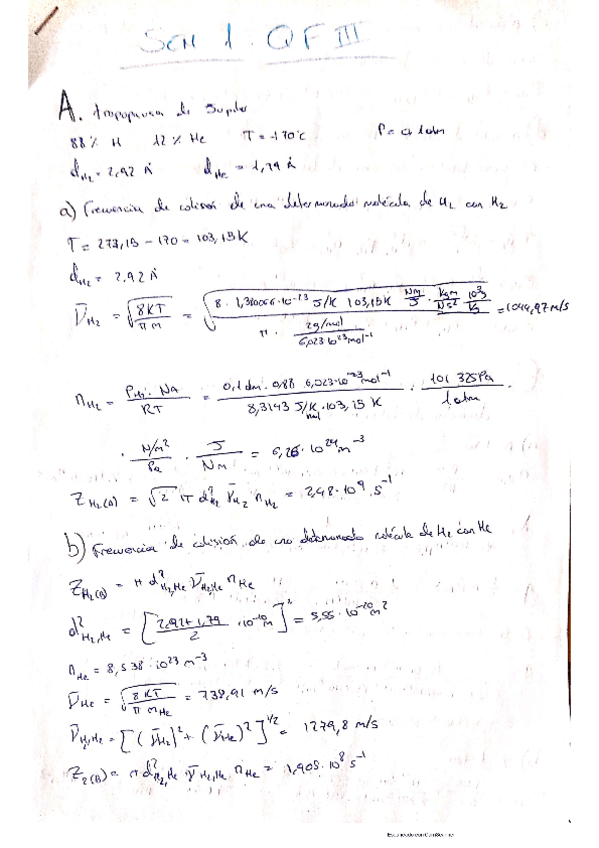 SEM 1. QF III
A. Tropopausa de Jupiter
88% H 12% He T = -170°C P = 0,1 atm
d_H2 = 2,92 Å d_He = 1,79 Å
a) Frecuencia de colisión de una determinada molécula de H2 con H2
T = 273,15 - 170 = 103,15K
d_H2 = 2,92 Å
V̄_H2 = √(8KT / π m) = √(8 · 1,380066·10^-23 J/K 103,15K Nm/J · Kgm/Ns² 10³/Kg / π · 2g/mol / 6,023·10^23 mol^-1) = 1044,97 m/s
n_H2 = P_H2 · NA / RT = 0,1 atm · 0,88 6,023·10^23 mol^-1 / 8,3143 J/K mol · 103,15 K · 101 325Pa / 1 atm ·
· N/m² / Pa · J / Nm = 6,26 · 10^24 m^-3
Z_H2(A) = √2 π d²_H2 V̄_H2 n_H2 = 2,48·10^9 s^-1
b) Frecuencia de colisión de una determinada molécula de H2 con He
Z_H2(B) = π d²_H2,He V̄_H2,He n_He
d²_H2,He = [2,92+1,79 / 2 · 10^-10 m]² = 5,55 · 10^-20 m²
n_He = 8,538 · 10^23 m^-3
V̄_He = √(8KT / π m_He) = 738,91 m/s
V̄_H2,He = [(V̄_H2)² + (V̄_He)²]^1/2 = 1279,8 m/s
Z_2(B) = π d²_H2,He V̄_H2,He n_He = 1,905 · 10^8 s^-1
Escaneado con CamScanner